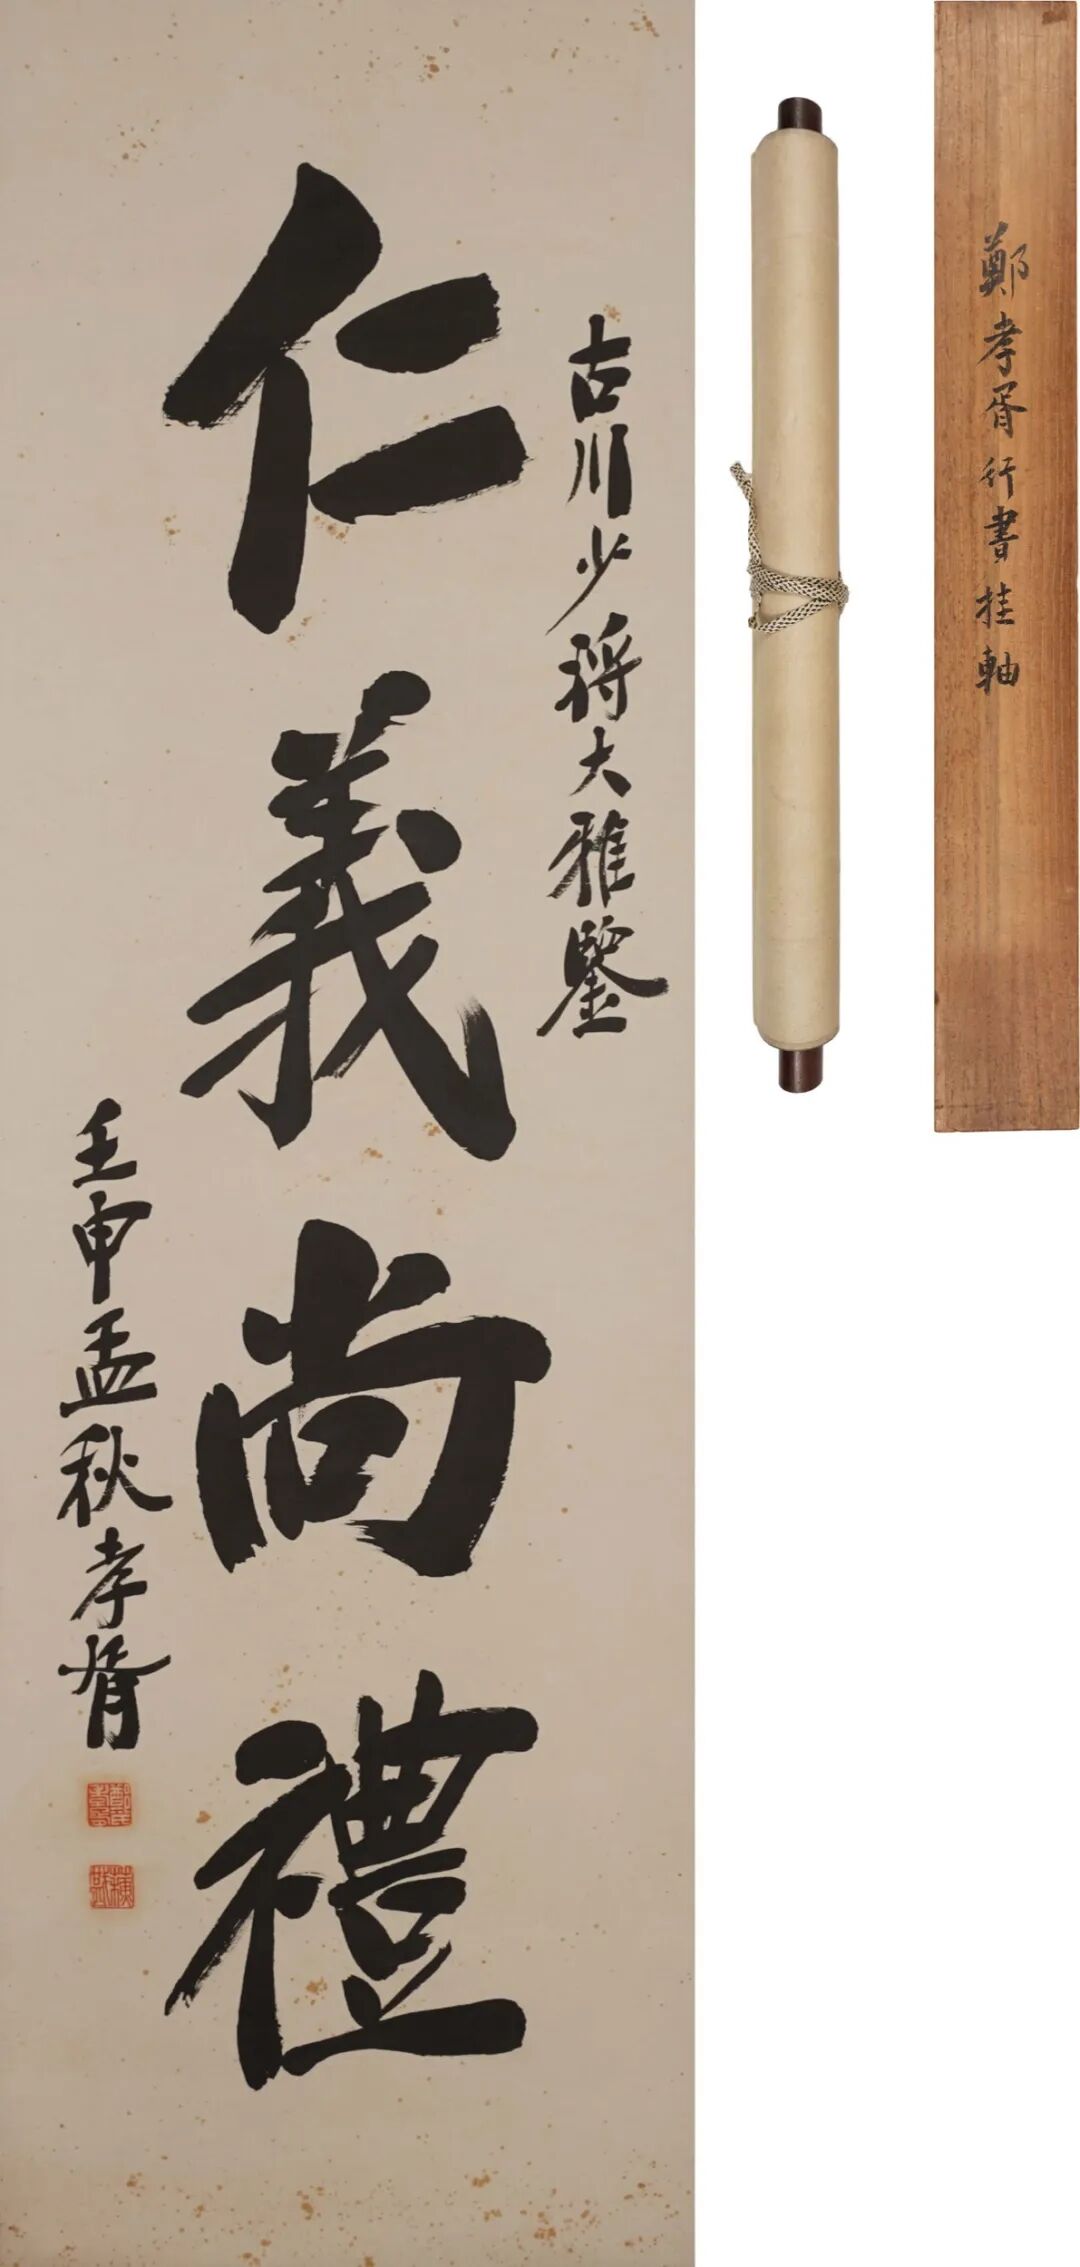 古川少將大雅鑒
仁義尚禮
壬申孟秋孝胥
鄭孝胥行書挂軸